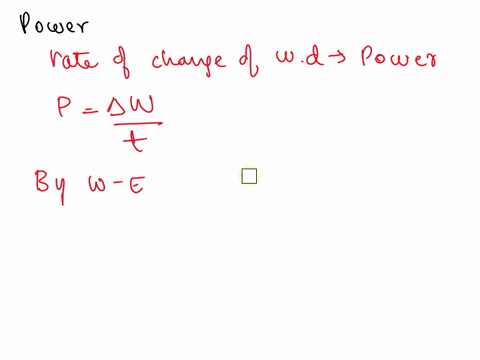 Power
rate of change of w.d → Power
P = ΔW / t
By W-E